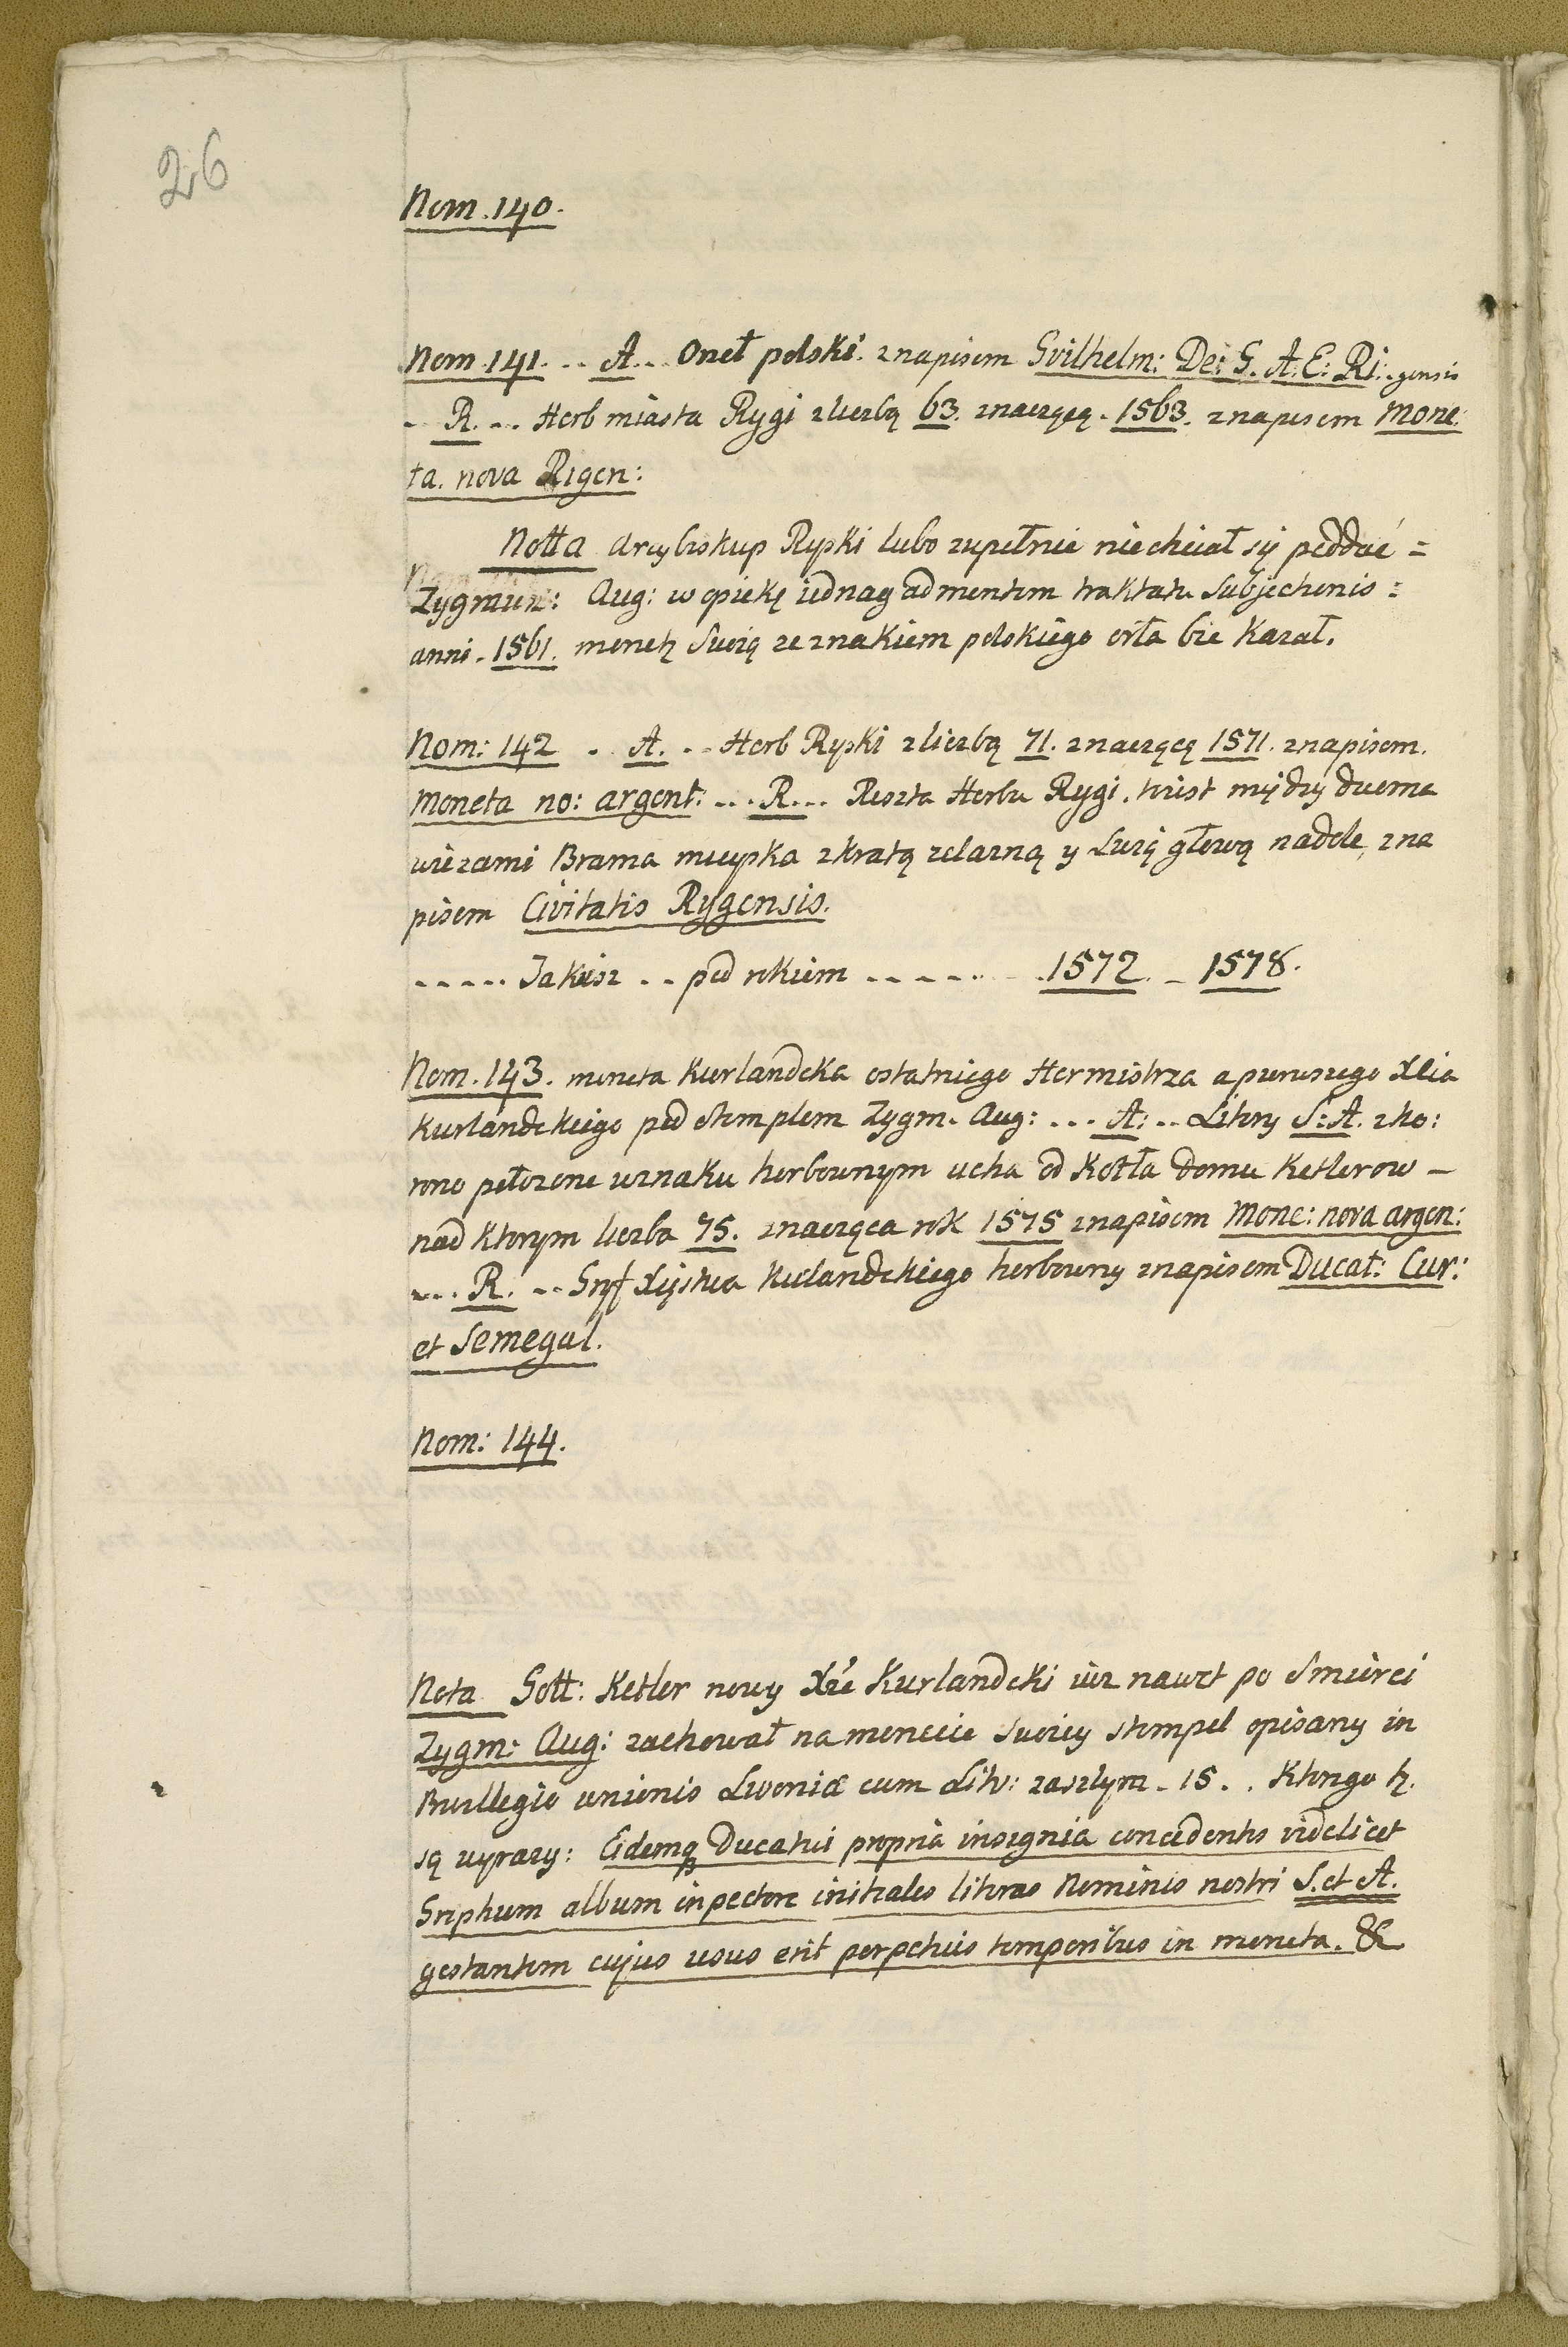 26
Nom. 140.
Nom. 141. .. A. .. Oneł polski. z napisem Gvilhelm: De: G. A. E: Ri: gensis
.. R. .. Herb miasta Rygi z liczbą 63. znaczącą. 1563. z napisem Mone:
ta. nova Rigen:
Notta Arcybiskup Ryski lubo zupełnie niechciał się poddać =
Zygmun: Aug: w opiekę iednag ad mentem traktatu Subjectionis =
anni. 1561. monetę swoią ze znakiem polskiego orła bić kazał.
Nom: 142 . A. .. Herb Ryski z liczbą 71. znaczącą 1571. z napisem.
Moneta no: argent: ... R... Reszta Herbu Rygi. to iest między dwema
wieżami Brama mieyska z kratą zelazną y Lwią głową na dole, z na
pisem Civitatis Rygensis.
..... Jakiesz .. pod rokiem ...... 1572. _ 1578.
Nom. 143. moneta Kurlandcka ostatniego Hermistrza a pierwszego Xcia
Kurlandckiego pod stemplem Zygm. Aug: ... A: .. Litery S: A. z ko:
rono położone w znaku herbownym ucha od Kotła domu Ketlerow _
nad ktorym liczba 75. znacząca rok 1575 z napisem Mone: nova argen:
... R. .. Gryf Xięstwa Kurlandckiego herbowny z napisem Ducat: Cur:
et Semegal.
Nom: 144.
Nota Gott: Ketler nowy Xże Kurlandcki iuz nawet po Smierci
Zygm: Aug: zachował na monecie swoiey stempel opisany in
Privilegio unionis Livoniæ cum Litv: zaszłym _ 15 . . Ktorego te.
są wyrazy: Eidemq Ducatui propria insignia concedentes videlicet
Griphum album in pectore initiales literas Nominis nostri S. et A.
gestantem cujus usus erit perpetuis temporibus in moneta. &c